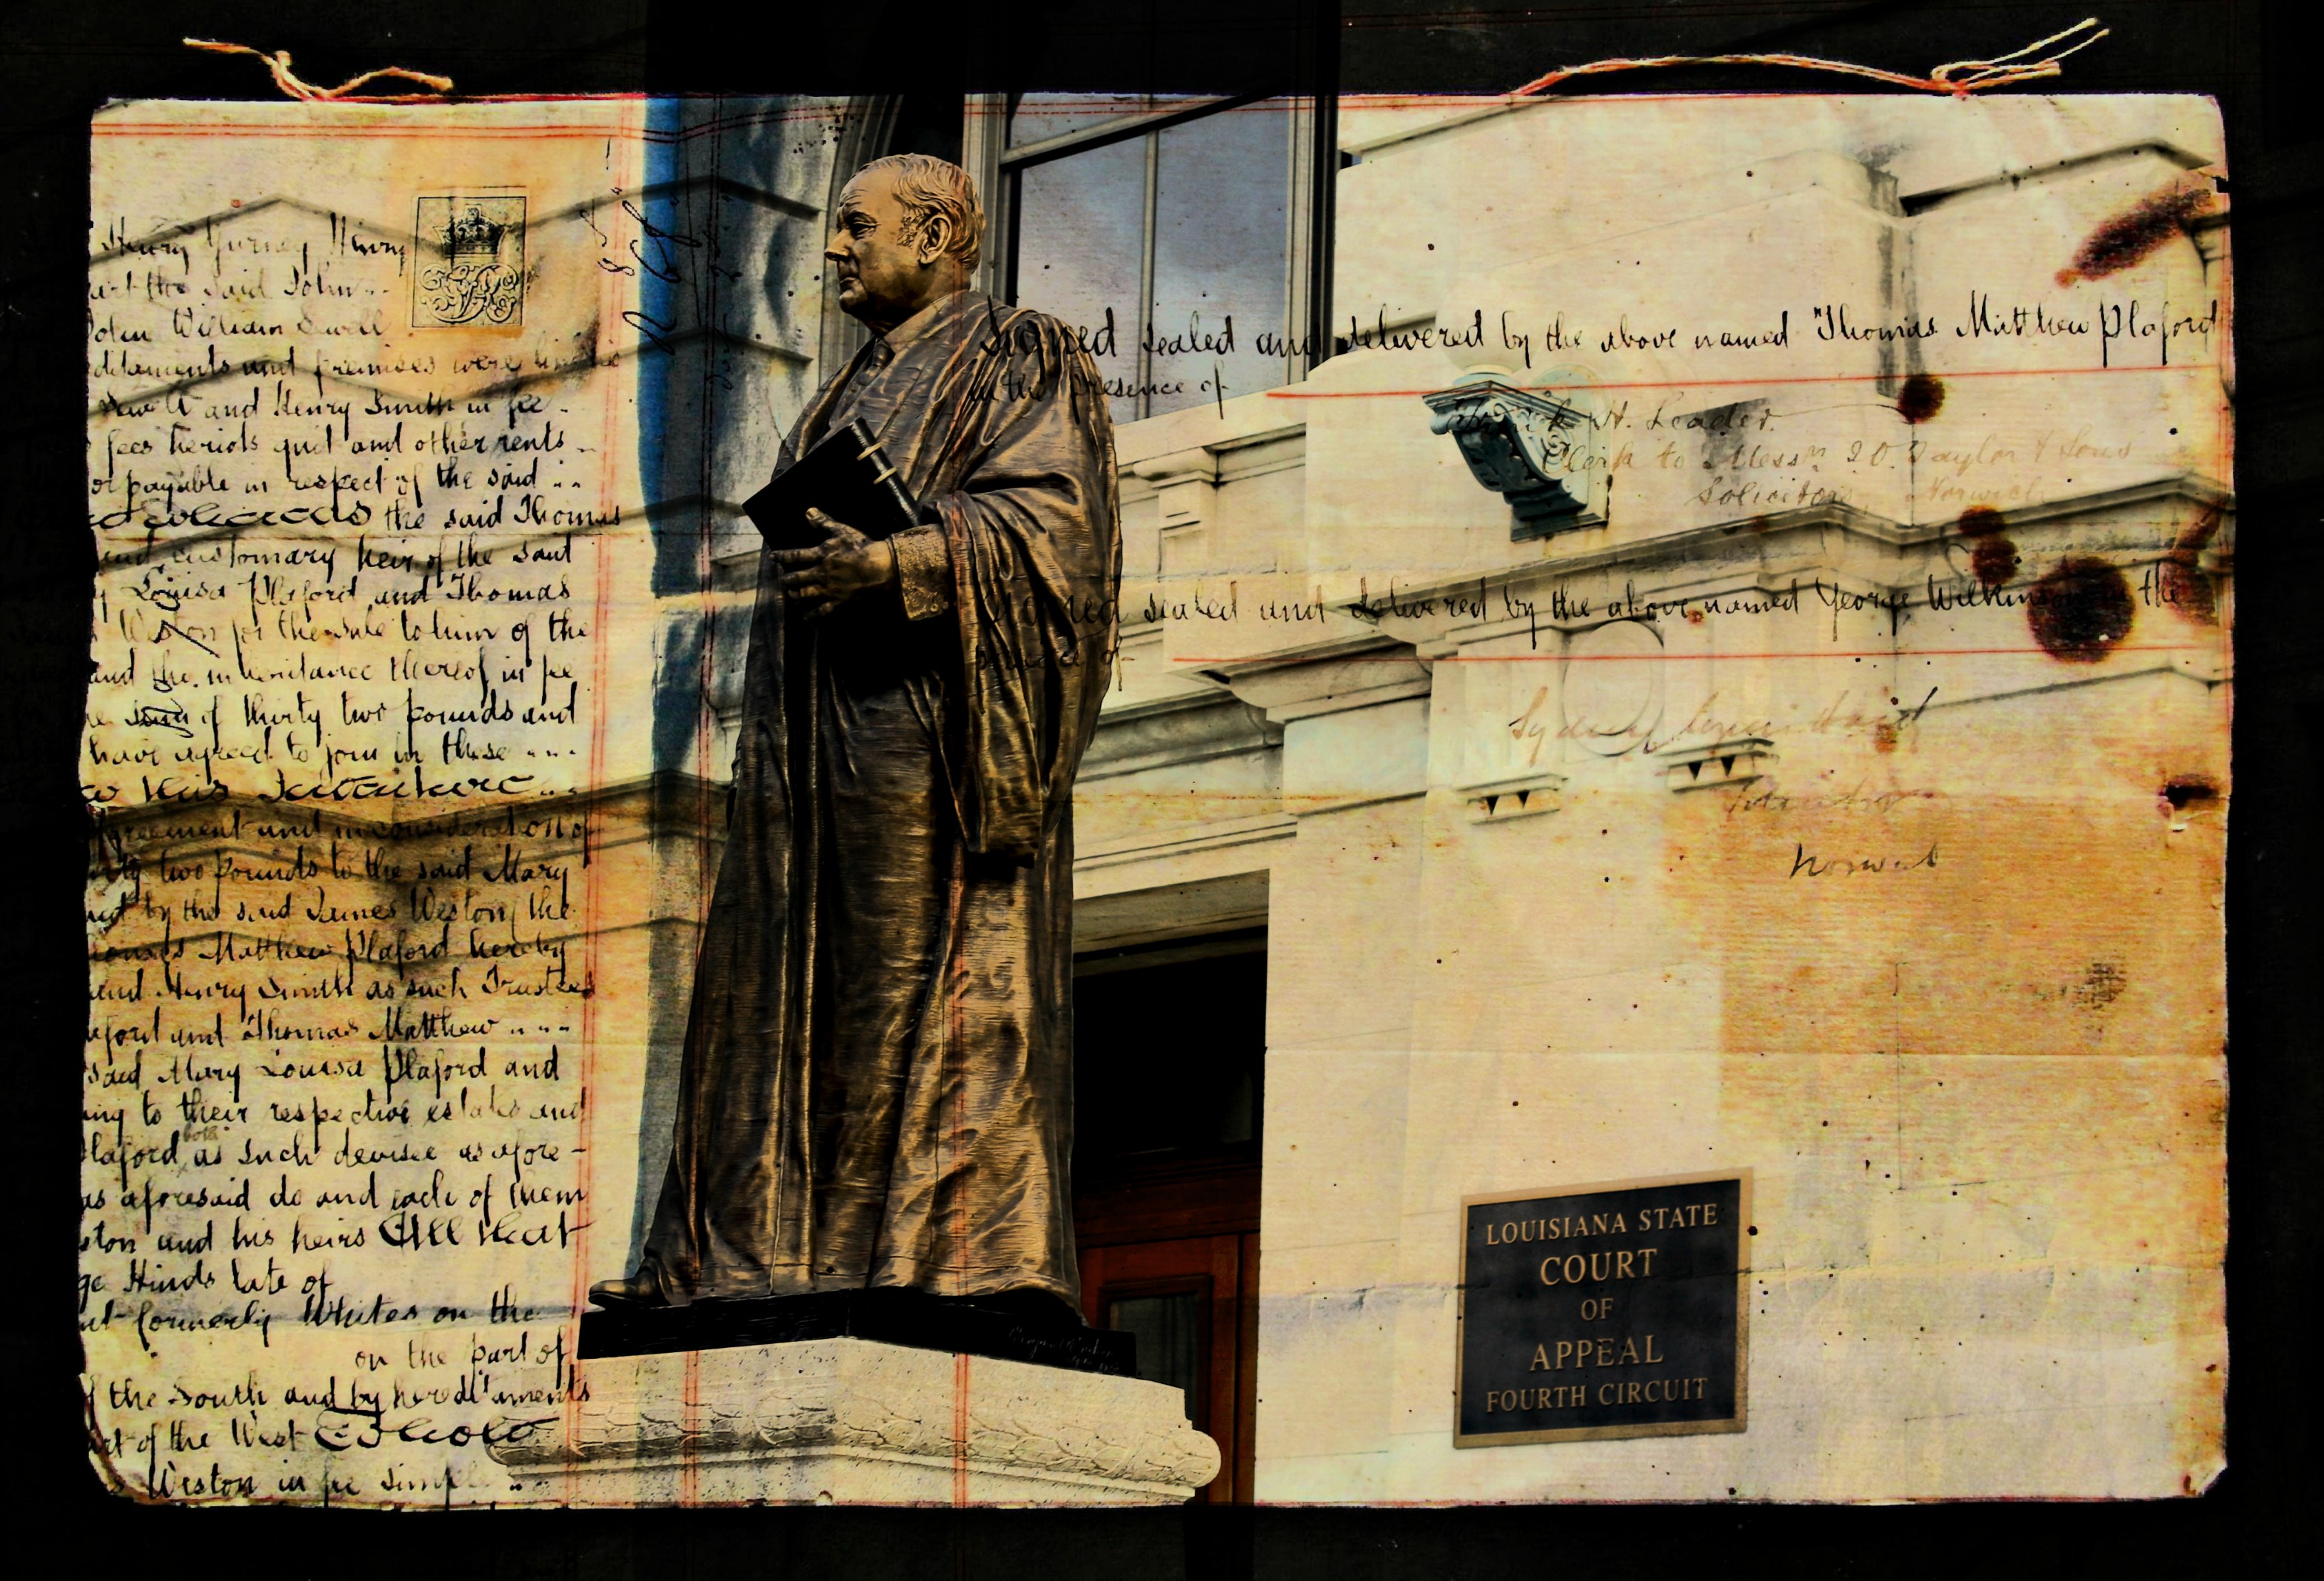 Henry Gurney Henry
the said John
John William Sewell
ditaments and premises were
Sewell and Henry Smith in fee
fees heriots quit and other rents
or payable in respect of the said
the said Thomas
and customary heir of the said
Louisa Plaford and Thomas
Weston for the sale to him of the
and the inheritance thereof in fee
sum of thirty two pounds and
have agreed to join in these
this Indenture
agreement and in consideration of
two pounds to the said Mary
by the said James Weston the
Matthew Plaford hereby
and Henry Smith as such Trustees
aford and Thomas Matthew
said Mary Louisa Plaford and
ing to their respective estates and
both
laford as such devisee as afore-
as aforesaid do and each of them
ston and his heirs All that
ge Hinds late of
formerly Whites on the
on the part of
the South and by hereditaments
of the West To hold
Weston in fee simple
Signed sealed and delivered by the above named Thomas Matthew Plaford
in the presence of
H. Leader.
Clerk to Messrs Taylor & Sons
Solicitors, Norwich
Signed sealed and delivered by the above named George Wilkinson in the
presence of
Sydney
LOUISIANA STATE
COURT
OF
APPEAL
FOURTH CIRCUIT